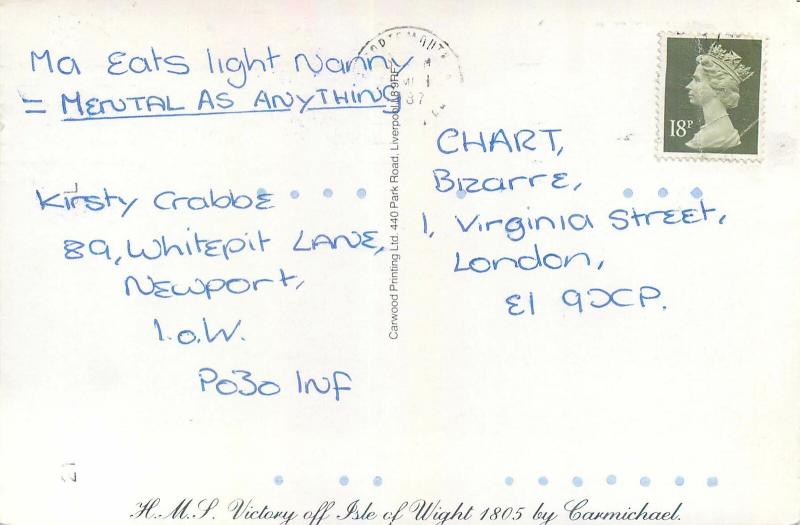 Ma Eats light Nanny
= MENTAL AS ANYTHING
Kirsty Crabbe
89, Whitepit LANE,
Newport,
I.O.W.
PO30 1NF
Carwood Printing Ltd. 440 Park Road, Liverpool L8 9RF
18P
CHART,
Bizarre,
1, Virginia Street,
London,
E1 9XP.
H.M.S. Victory off Isle of Wight 1805 by Carmichael.